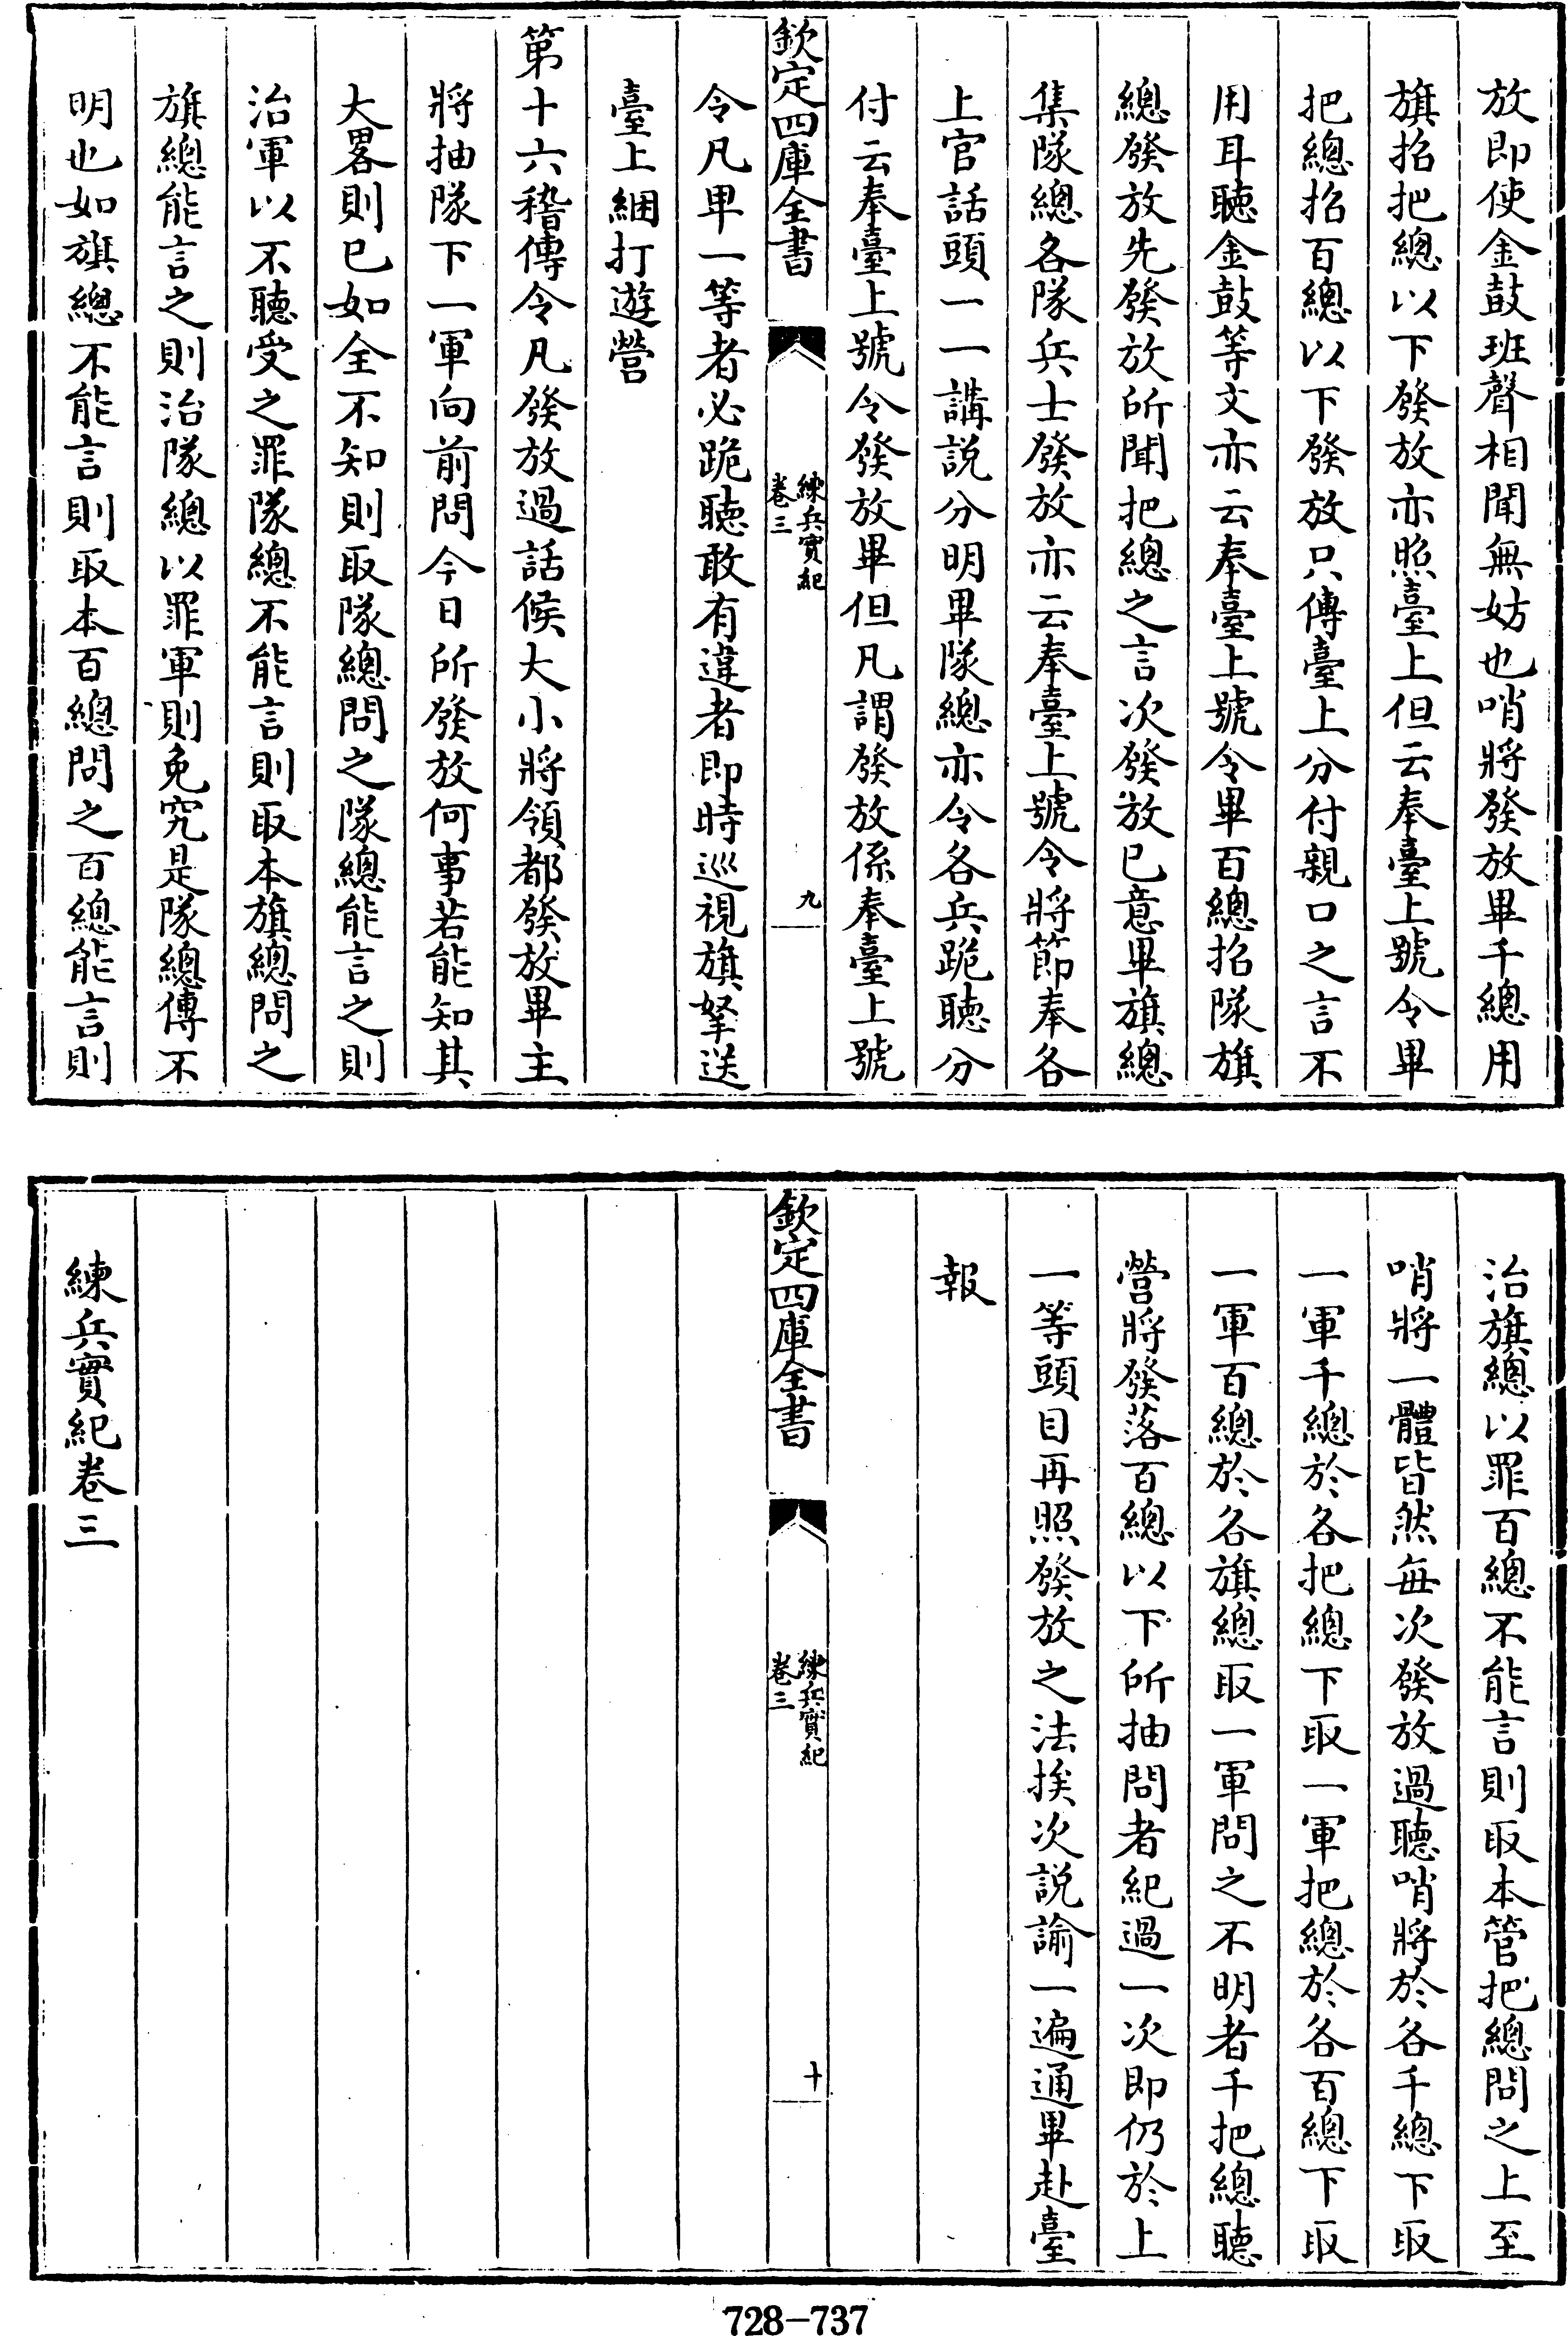 放即使金鼓班聲相聞無妨也哨將發放畢千總用
旗招把總以下發放亦照臺上但云奉臺上號令畢
把總招百總以下發放只傳臺上分付親口之言不
用耳聽金鼓等文亦云奉臺上號令畢百總招隊旗
總發放先發放所聞把總之言次發放已意畢旗總
集隊總各隊兵士發放亦云奉臺上號令將節奉各
上官話頭一一講説分明畢隊總亦令各兵跪聽分
付云奉臺上號令發放畢但凡謂發放係奉臺上號
欽定四庫全書
練兵實紀
卷三
九
令凡卑一等者必跪聽敢有違者即時巡視旗拏送
臺上綑打遊營
第十六稽傳令凡發放過話候大小將領都發放畢主
將抽隊下一軍向前問今日所發放何事若能知其
大畧則已如全不知則取隊總問之隊總能言之則
治軍以不聽受之罪隊總不能言則取本旗總問之
旗總能言之則治隊總以罪軍則免究是隊總傳不
明也如旗總不能言則取本百總問之百總能言則
治旗總以罪百總不能言則取本管把總問之上至
哨將一體皆然每次發放過聽哨將於各千總下取
一軍千總於各把總下取一軍把總於各百總下取
一軍百總於各旗總取一軍問之不明者千把總聽
營將發落百總以下所抽問者紀過一次即仍於上
一等頭目再照發放之法挨次説諭一遍通畢赴臺
報
欽定四庫全書
練兵實紀
卷三
十
練兵實紀卷三
728-737